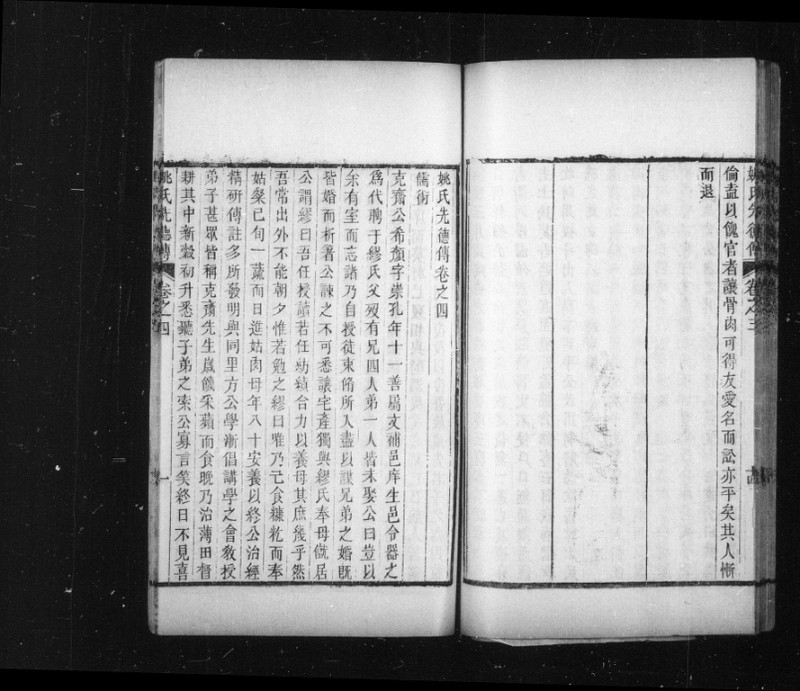 姚氏先德傳 卷之三
偷盍以傀官者讓骨肉可得友愛名而訟亦平矣其人慚
而退
姚氏先德傳卷之四
儒術
克齋公希顏字崇孔年十一善屬文補邑庠生邑令器之
爲代聘于繆氏父歿有兄四人弟一人皆未娶公曰豈以
余有室而忘諸乃自授徒束脩所入盡以謀兄弟之婚既
皆婚而析箸公諫之不可悉讓宅產獨與繆氏奉母僦居
公謂繆曰吾任授讀若任紡績合力以養母其庶幾乎然
吾常出外不能朝夕惟若勉之繆曰唯乃己食糠籺而奉
姑粲已旬一蔬而日進姑肉母年八十安養以終公治經
精研傳註多所發明與同里方公學漸倡講學之會教授
弟子甚眾皆稱克齋先生歲饑采蘋而食晚乃治薄田督
耕其中新穀初升悉聽子弟之索公寡言笑終日不見喜
姚氏先德傳 卷之四 一